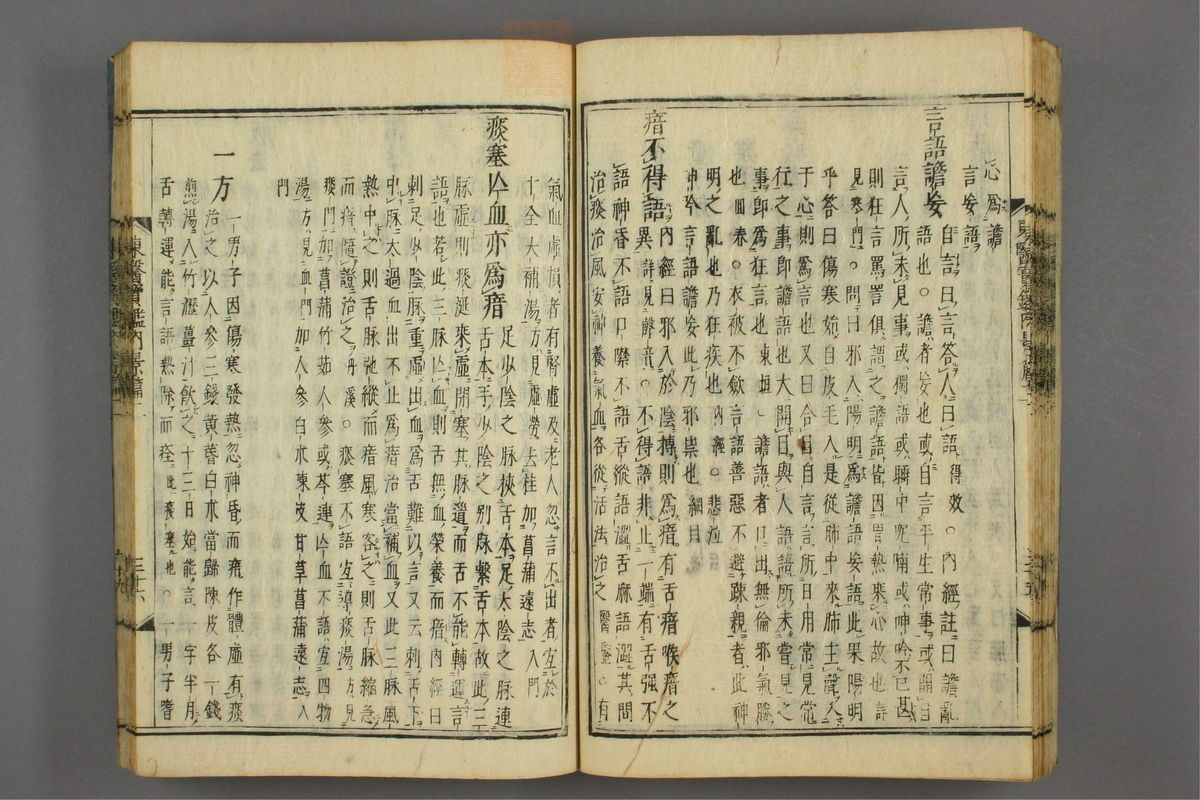 心爲譫
言妄語
言語譫妄 自言曰言答人曰語得效○內經註曰譫亂
語也○譫者妄也或自言平生常事或開目
言人所未見事或獨語或睡中呢喃或呻吟不已甚
則狂言罵詈俱謂之譫語皆因胃熱乘心故也詳
見寒門○問曰邪入陽明爲譫語妄語此果陽明
乎答曰傷寒始自皮毛入是從肺中來肺主聲入
于心則爲言也又曰合目自言言所日用常見常
行之事卽譫語也大開目與人語語所未嘗見之
事卽爲狂言也東垣○譫語者口出無倫邪氣勝
也回春○衣被不斂言語善惡不避疎親者此神
明之亂也乃狂疾也內經○悲泣
呻吟言語譫妄此乃邪祟也綱目
瘖不得語 內經曰邪入於陰搏則爲瘖有舌瘖喉瘖之
異詳見聲音○不得語非止一端有舌强不
語神昏不語口噤不語舌縱語澁舌麻語澁其間
治痰治風安神養氣血各從活法治之醫鑒○有
氣血虛損者有腎虛及老人忽言不出者宜於
十全大補湯方見虛勞去桂加菖蒲遠志入門
痰塞亾血亦爲瘖 足少陰之脉挾舌本足太陰之脉連
舌本手少陰之別脉繫舌本故此三
脉虛則痰涎乘虛閉塞其脉道而舌不能轉運言
語也若此三脉亾血則舌無血榮養而瘖內經曰
刺足少陰脉重虛出血爲舌難以言又云刺舌下
中脉太過血出不止爲瘖治當補血又此三脉風
熱中之則舌脉弛縱而瘖風寒客之則舌脉縮急
而瘖隨證治之丹溪○痰塞不語宜導痰湯方見
痰門加菖蒲竹茹人參或芩連亾血不語宜四物
湯方見血門加人參白朮陳皮甘草菖蒲遠志入
門
一方 一男子因傷寒發熱忽神昏而瘖作體虛有痰
治之以人參三錢黃蓍白朮當歸陳皮各一錢
煎湯入竹瀝薑汁飮之十三日始能言一字半月
舌轉運能言語熱除而痊此痰塞也○一男子嗜